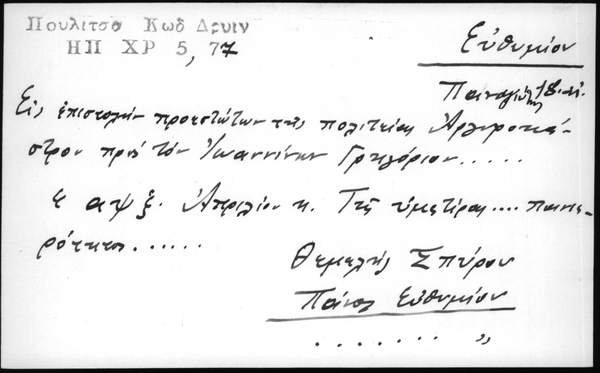 Πουλιτσα Κωδ Δρυιν
ΗΠ ΧΡ 5, 77
Εὐθυμίου
Παναγιώτης 18. αἰ.
Εἰς ἐπιστολὴν προεστώτων τῆς πολιτείας Ἀργυροκά-
στρου πρὸς τὸν Ἰωαννίνων Γρηγόριον.....
αψξ. Ἀπριλίου κ. Τῆς ὑμετέρας.... πανιε-
ρότητος......
Θεμελῆς Σπύρου
Πάνος Εὐθυμίου
....... „